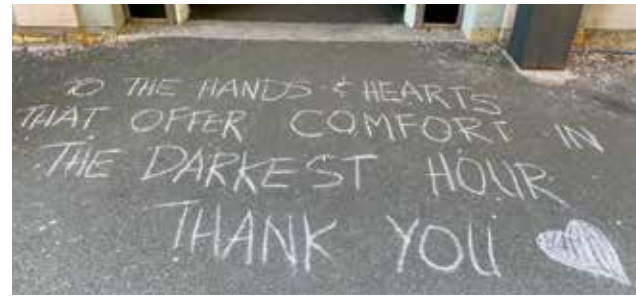 TO THE HANDS & HEARTS
THAT OFFER COMFORT IN
THE DARKEST HOUR
THANK YOU